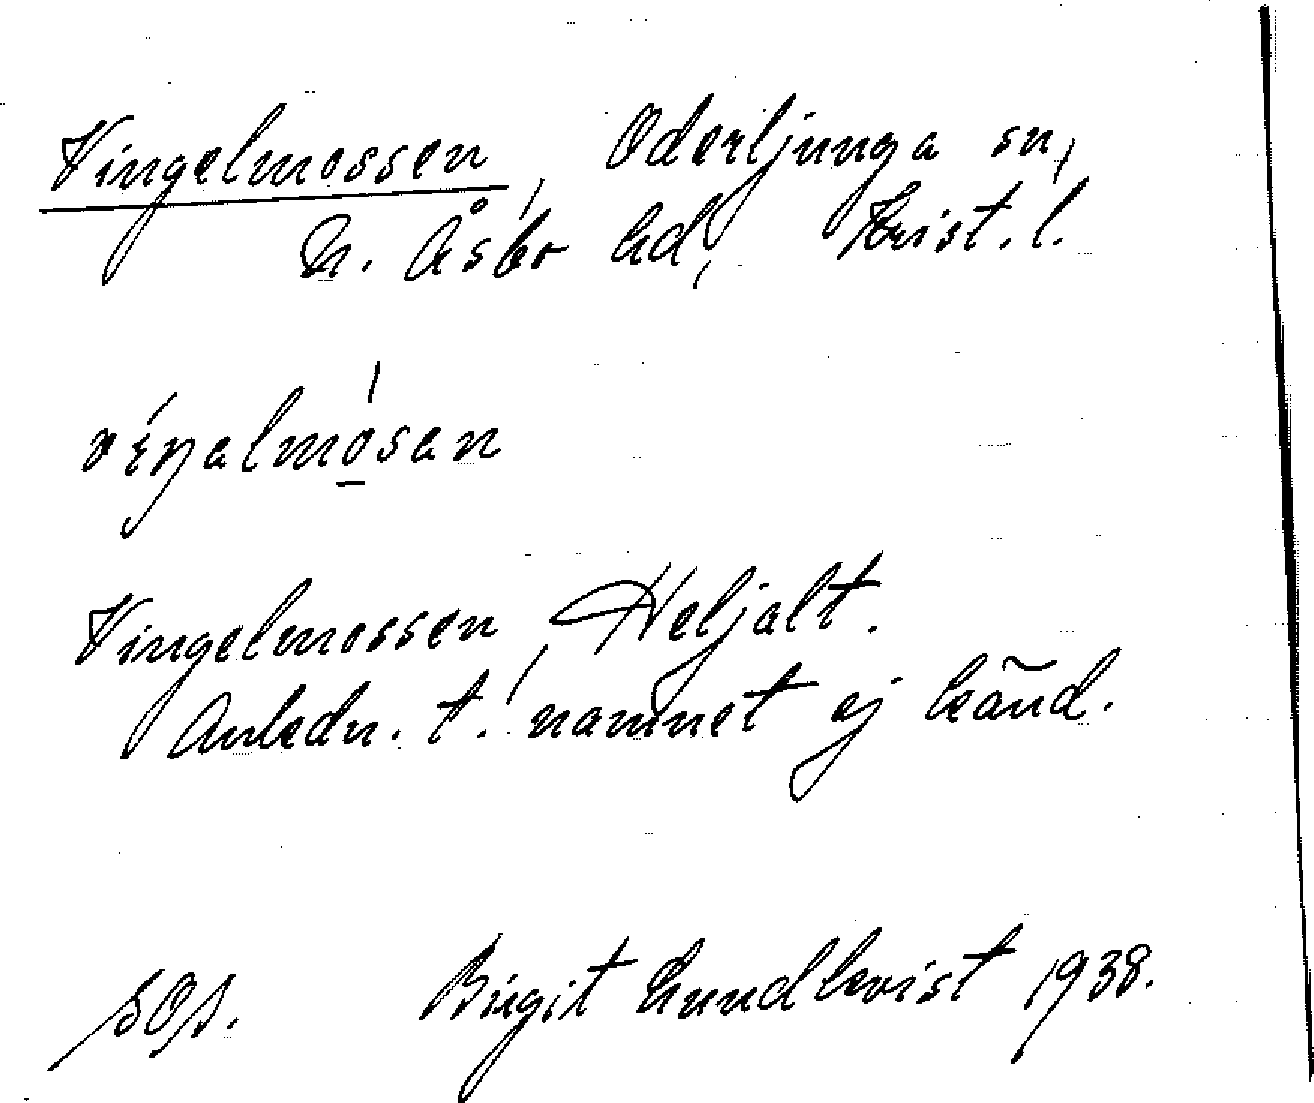 Vingelmossen, Oderljunga sn,
N. Åsbo hd, Krist. l.
véŋalmósan
Vingelmossen, Heljalt.
Anledn. t. namnet ej känd.
SOA. Birgit Lundkvist 1938.